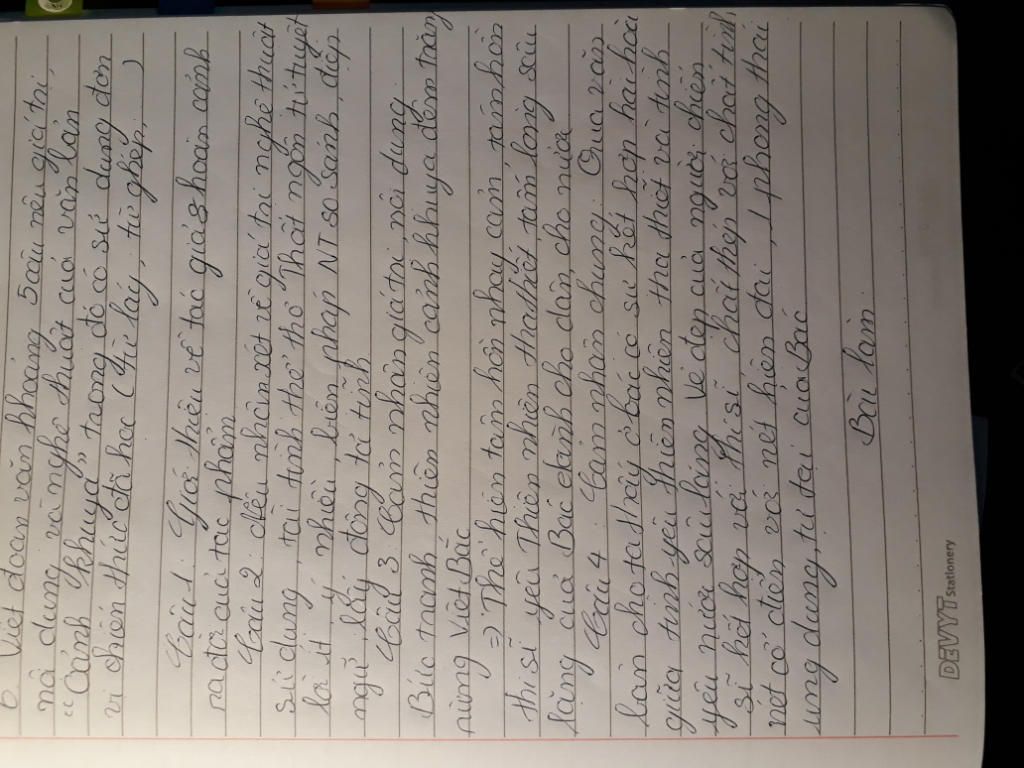 6 Viết đoạn văn khoảng 5 câu nêu giá trị,
nô dung và nghệ thuật của văn bản
"Cảnh khuya" trong đó có sử dụng đơn
vị chiến thức đã học (từ láy, từ ghép,)
Câu 1. Giới thiệu về tác giả & hoàn cảnh
ra đời của tác phẩm
Câu 2. nêu nhận xét về giá trị nghệ thuật
sử dụng, tài tình thể thơ Thất ngôn tứ tuyệt
lời ít ý nhiều biện pháp NT so sánh, điệp
ngữ, lấy động tả tĩnh
Câu 3 Cảm nhận giá trị, nội dung
Bức tranh thiên nhiên cảnh khuya đêm trăng
rừng Việt Bắc
=> Thể hiện tâm hồn nhạy cảm, tâm hồn
thi sĩ yêu Thiên nhiên tha thiết, tấm lòng sâu
lặng của Bác dành cho dân, cho nước
Câu 4. Cảm nhận chung. Qua văn
bản cho ta thấy ở bác có sự kết hợp hài hòa
giữa tình yêu thiên nhiên tha thiết và tình
yêu nước sâu lắng. Vẻ đẹp của người chiến
sĩ kết hợp với thi sĩ chất thép với chất tình
nét cổ điển với nét hiện đại, 1 phong thái
ung dung, tự tại của Bác
Bài làm
DEVYT Stationery